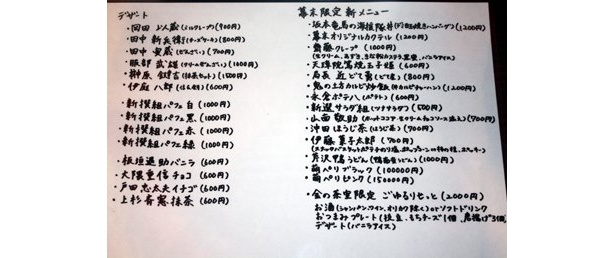 デザート
・田中 新兵衛(チーズケーキ)(800円)
・田中 寅蔵(ぜんざい)(700円)
・服部 武雄(クリームぜんざい)(1000円)
・榊原 鍵吉(抹茶セット)(1500円)
・伊庭 八郎(600円)
・新撰組パフェ 白(1000円)
・新撰組パフェ 黒(1000円)
・新撰組パフェ 赤(1000円)
・新撰組パフェ 緑(1000円)
・板垣退助バニラ(600円)
・大隈重信チョコ(600円)
・戸田忠太夫イチゴ(600円)
・上杉斉憲抹茶(600円)
幕末限定 新メニュー
・坂本竜馬の海援隊丼(1200円)
・幕末オリジナルカクテル(1200円)
・齋藤クレープ(1000円)
(生クリーム、あずき、きな粉カステラ、黒蜜、バニラアイス)
・天璋院篤焼玉子姫(600円)
・局長 近どて勇(どて煮)(800円)
・鬼の土方カレピ炒飯(1200円)
・永倉ポテ八(ポテト)(600円)
・新選サラダ組(ツナサラダ)(500円)
・山南敬助(ホットココア・生クリームチョコソース添え)(700円)
・沖田ほうじ茶(ほうじ茶)(700円)
・伊藤菓子太郎(700円)
・芹沢鴨うどん(鴨南蛮うどん)(1000円)
・萌ペリブラック(100000円)
・萌ペリピンク(150000円)
・金の茶室限定 ごゆるりせっと(2000円)
お酒(シャンパン、ワイン、オリカク除く)orソフトドリンク
おつまみプレート(枝豆、もちチーズ1個、唐揚げ3個)
デザート(バニラアイス)